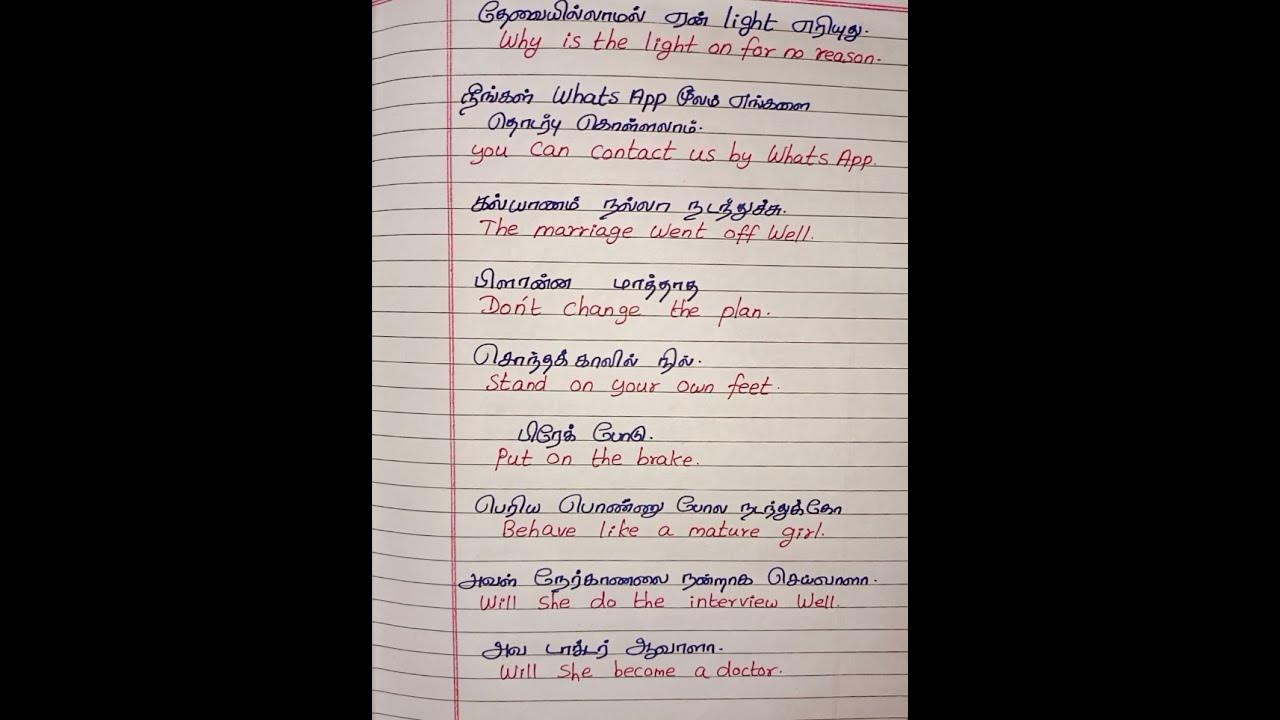 தேவையில்லாமல் ஏன் light எரியுது.
Why is the light on for no reason.
நீங்கள் WhatsApp மூலம் எங்களை
தொடர்பு கொள்ளலாம்.
you can contact us by WhatsApp.
கல்யாணம் நல்லா நடந்துச்சு.
The marriage went off well.
பிளான்ன மாத்தாத
Don't change the plan.
சொந்தக் காலில் நில்.
Stand on your own feet.
பிரேக் போடு.
Put on the brake.
பெரிய பொண்ணு போல நடந்துக்கோ
Behave like a mature girl.
அவள் நேர்காணலை நன்றாக செய்வாளா.
Will she do the interview well.
அவ டாக்டர் ஆவாளா.
Will she become a doctor.